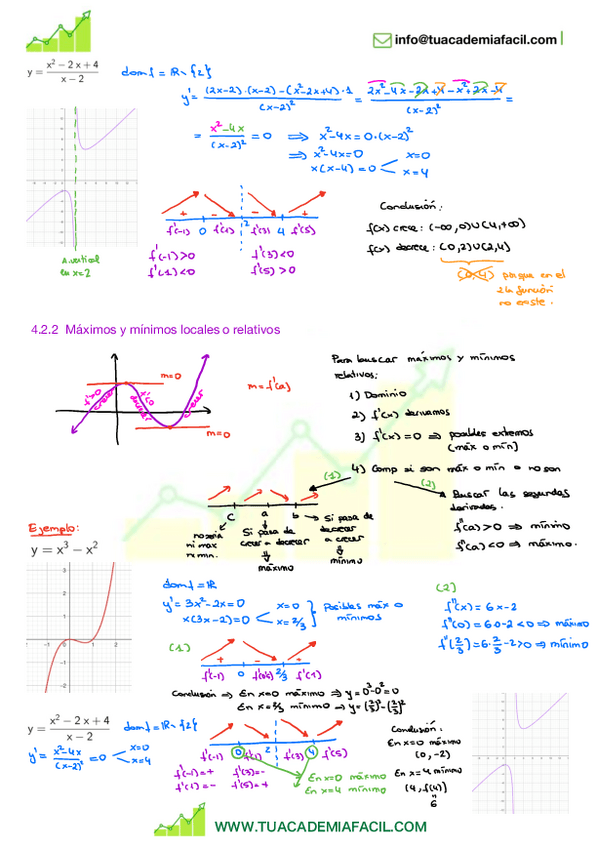 info@tuacademiafacil.com
y = (x² − 2x + 4)/(x − 2)
domf = ℝ∖{2}
y' = ((2x−2)·(x−2) − (x²−2x+4)·1)/(x−2)² = (2x²−4x−2x+4−x²+2x−4)/(x−2)² =
= (x²−4x)/(x−2)² = 0 ⟹ x²−4x = 0·(x−2)²
⟹ x²−4x = 0
x(x−4) = 0 x=0
x=4
A. vertical
en x=2
+ − − +
f'(-1) 0 f'(1) 2 f'(3) 4 f'(5)
f'(-1)>0 f'(3)<0
f'(1)<0 f'(5)>0
Conclusión:
f(x) crece: (-∞,0)∪(4,+∞)
f(x) decrece: (0,2)∪(2,4)
(0,4) porque en el
2 la función
no existe.
4.2.2 Máximos y mínimos locales o relativos
m=0
f'>0 crecer
f'<0 decrecer
crecer
m=0
m = f'(a)
Para buscar máximos y mínimos
relativos:
1) Dominio
2) f'(x) derivamos
3) f'(x)=0 ⟹ posibles extremos
(máx o mín)
4) Comp si son máx o mín o no son
(1) (2)
c a b
no será
ni max
ni min.
Si pasa de
crecer a decrecer
⇓
máximo
Si pasa de
decrecer
a crecer
⇓
mínimo
Buscar las segundas
derivadas.
f''(a)>0 ⟹ mínimo
f''(a)<0 ⟹ máximo.
Ejemplo:
y = x³ − x²
domf = ℝ
y' = 3x²−2x = 0 x=0
x(3x−2)=0 x=2/3
posibles máx o
mínimos
(1)
+ − +
f'(-1) 0 f'(0'5) 2/3 f'(1)
(2)
f''(x) = 6x−2
f''(0) = 6·0−2 <0 ⟹ máximo
f''(2/3) = 6·2/3−2>0 ⟹ mínimo
Conclusión ⟹ En x=0 máximo ⟹ y=0³−0²=0
En x=2/3 mínimo ⟹ y=(2/3)³−(2/3)²
y = (x² − 2x + 4)/(x − 2)
domf = ℝ∖{2}
y' = (x²−4x)/(x−2)² = 0 x=0
x=4
f'(-1) 0 f'(1) 2 f'(3) 4 f'(5)
f'(-1)=+ f'(3)=-
f'(1)=- f'(5)=+
En x=0 máximo
En x=4 mínimo
Conclusión:
En x=0 máximo
(0,-2)
En x=4 mínimo
(4, f(4))
"
6
WWW.TUACADEMIAFACIL.COM